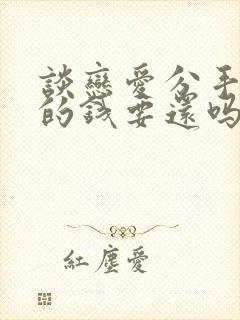 談戀愛分手
的錢要還嗎
紅塵愛